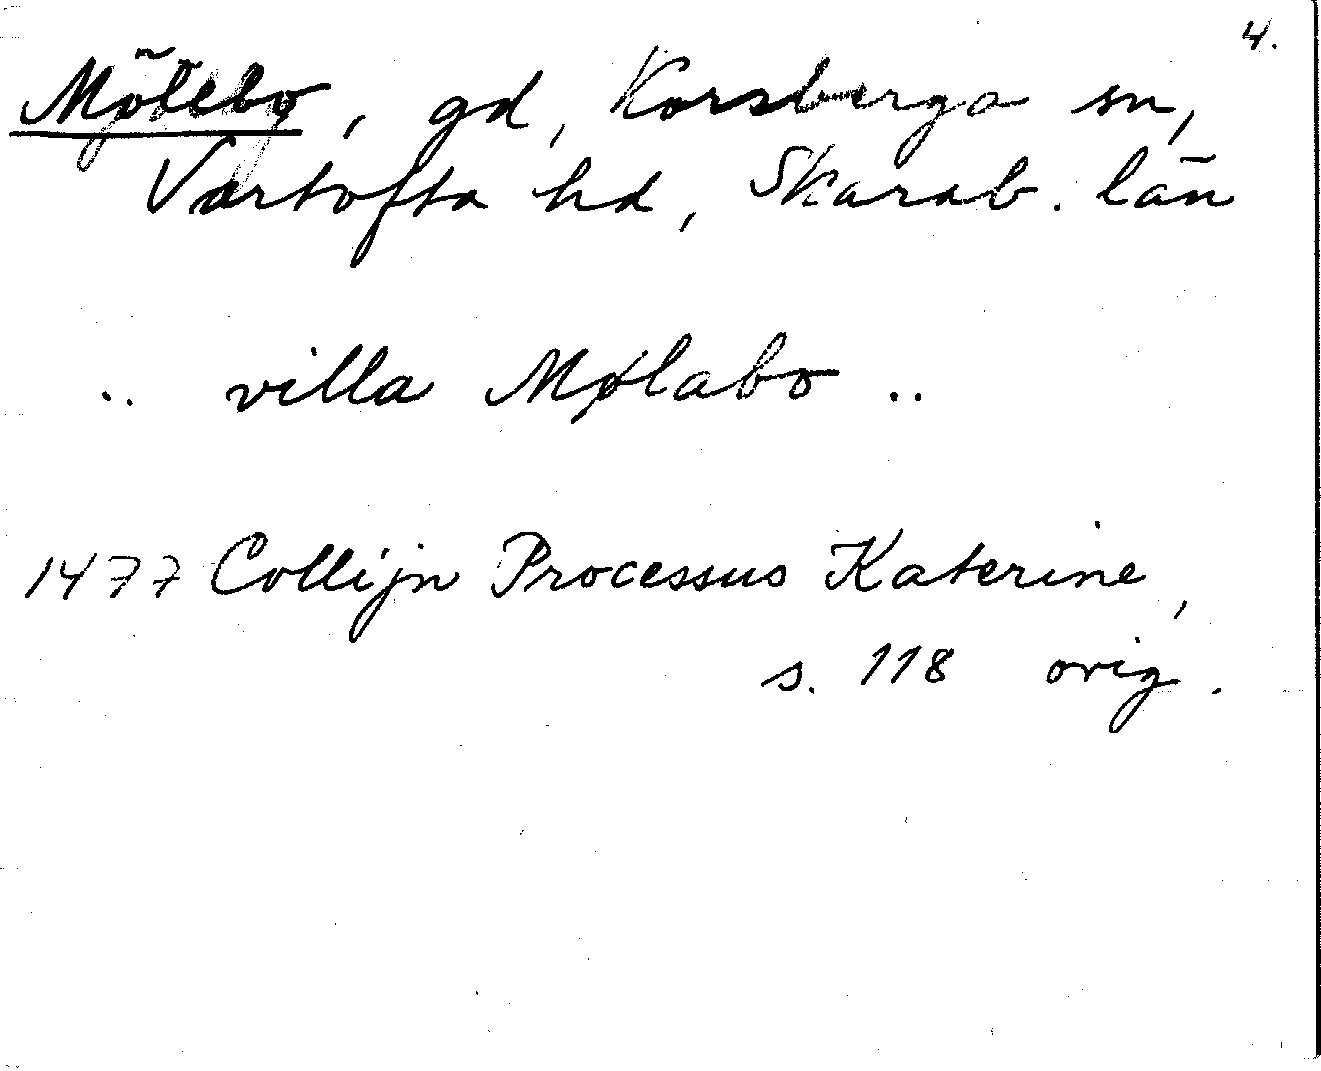 4.
Mölebo, gd, Korsberga sn,
Vartofta hd, Skarab. län
.. villa Mølabo ..
1477 Collijn Processus Katerine,
s. 118 orig.